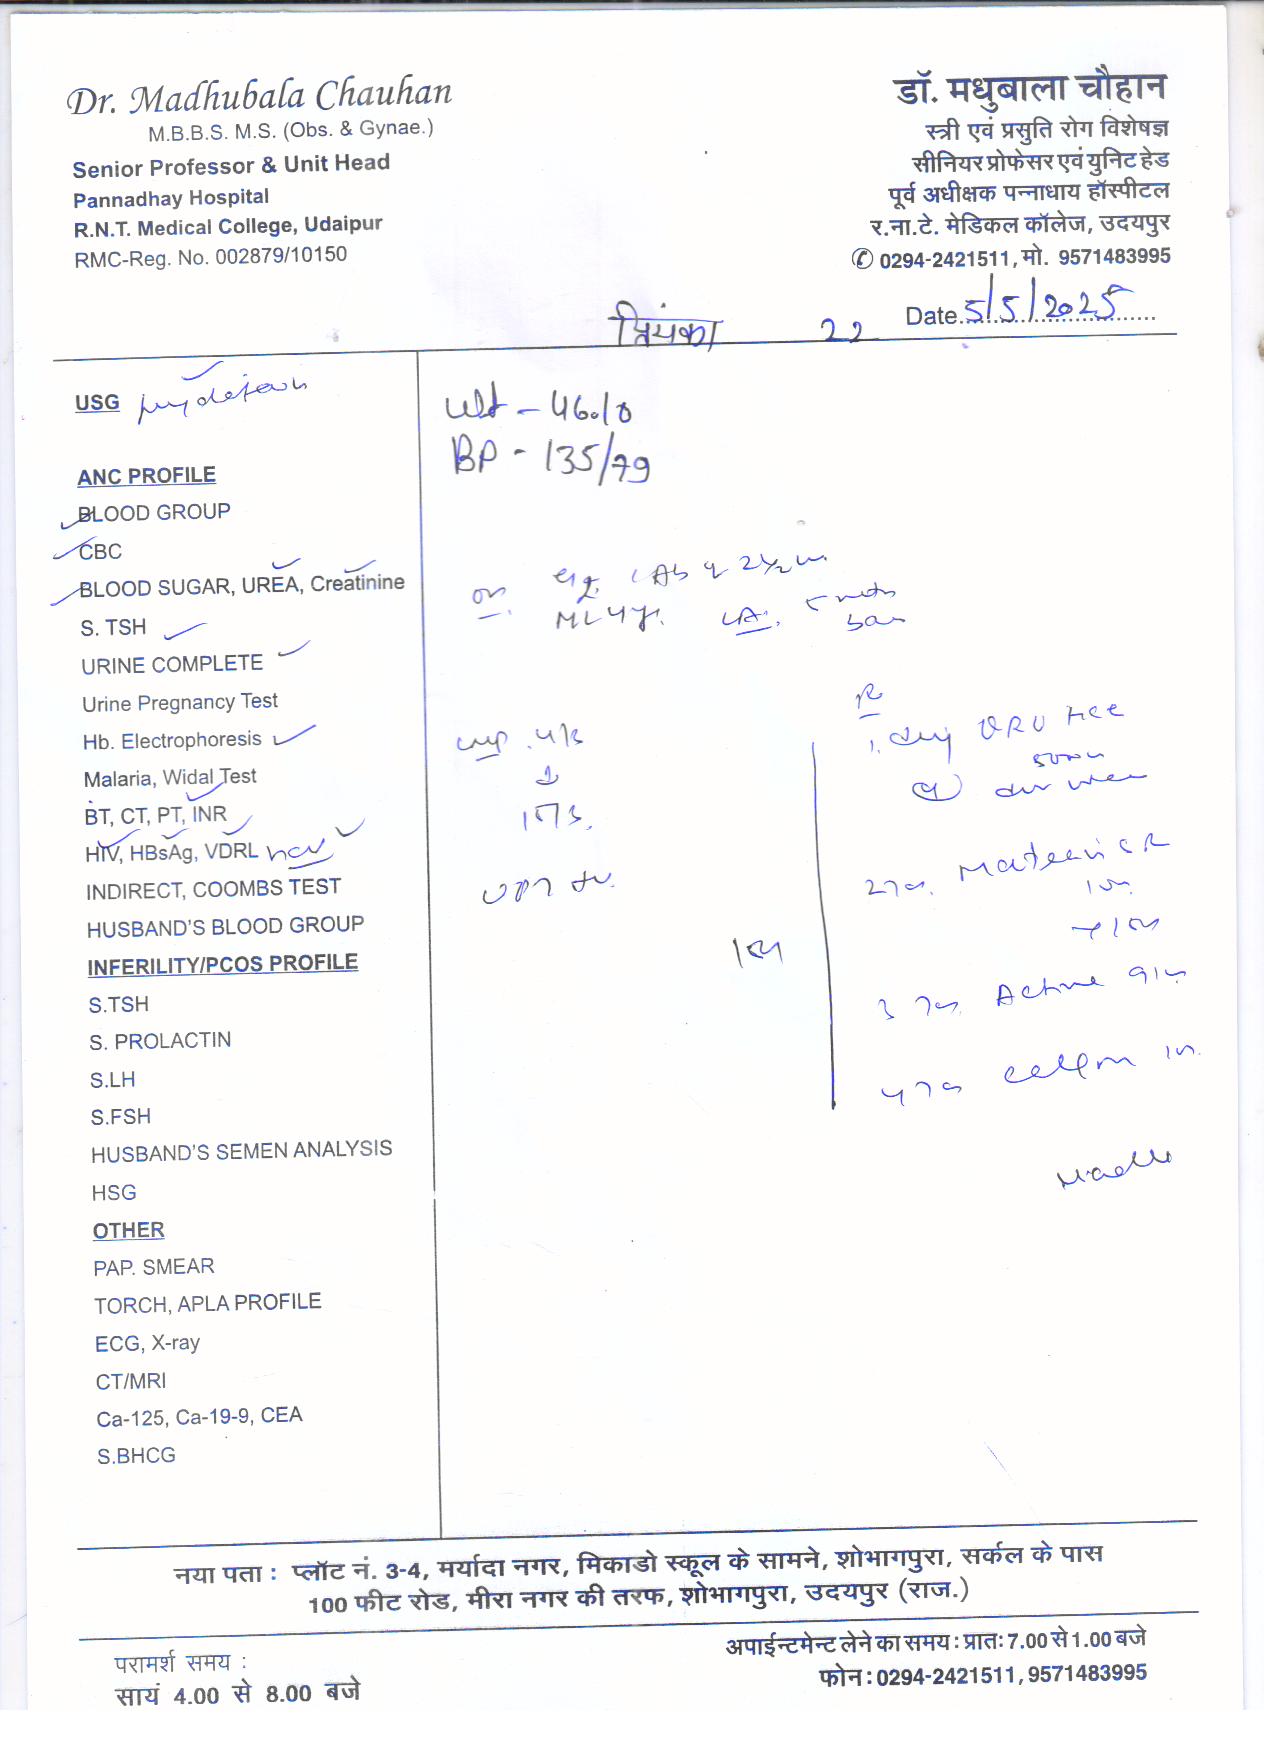 Dr. Madhubala Chauhan
M.B.B.S. M.S. (Obs. & Gynae.)
Senior Professor & Unit Head
Pannadhay Hospital
R.N.T. Medical College, Udaipur
RMC-Reg. No. 002879/10150
डॉ. मधुबाला चौहान
स्त्री एवं प्रसुति रोग विशेषज्ञ
सीनियर प्रोफेसर एवं युनिट हेड
पूर्व अधीक्षक पन्नाधाय हॉस्पीटल
र.ना.टे. मेडिकल कॉलेज, उदयपुर
✆ 0294-2421511, मो. 9571483995
प्रियंका 22 Date 5/5/2025
USG
ANC PROFILE
BLOOD GROUP
CBC
BLOOD SUGAR, UREA, Creatinine
S. TSH
URINE COMPLETE
Urine Pregnancy Test
Hb. Electrophoresis
Malaria, Widal Test
BT, CT, PT, INR
HIV, HBsAg, VDRL HCV
INDIRECT, COOMBS TEST
HUSBAND'S BLOOD GROUP
INFERILITY/PCOS PROFILE
S.TSH
S. PROLACTIN
S.LH
S.FSH
HUSBAND'S SEMEN ANALYSIS
HSG
OTHER
PAP. SMEAR
TORCH, APLA PROFILE
ECG, X-ray
CT/MRI
Ca-125, Ca-19-9, CEA
S.BHCG
Wt - 46.10
BP - 135/79
LMP
UPT
R
1.
3 Active
4
नया पता : प्लॉट नं. 3-4, मर्यादा नगर, मिकाडो स्कूल के सामने, शोभागपुरा, सर्कल के पास
100 फीट रोड, मीरा नगर की तरफ, शोभागपुरा, उदयपुर (राज.)
परामर्श समय :
सायं 4.00 से 8.00 बजे
अपाईन्टमेन्ट लेने का समय : प्रातः 7.00 से 1.00 बजे
फोन : 0294-2421511, 9571483995